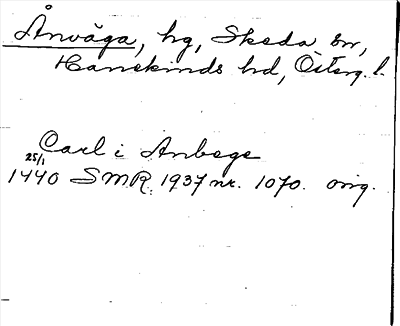 Ånväga, hg, Skeda sn,
Hanekinds hd, Österg. l.
Carl i Anbege
25/1
1440 SMR 1937 nr. 1070. orig.